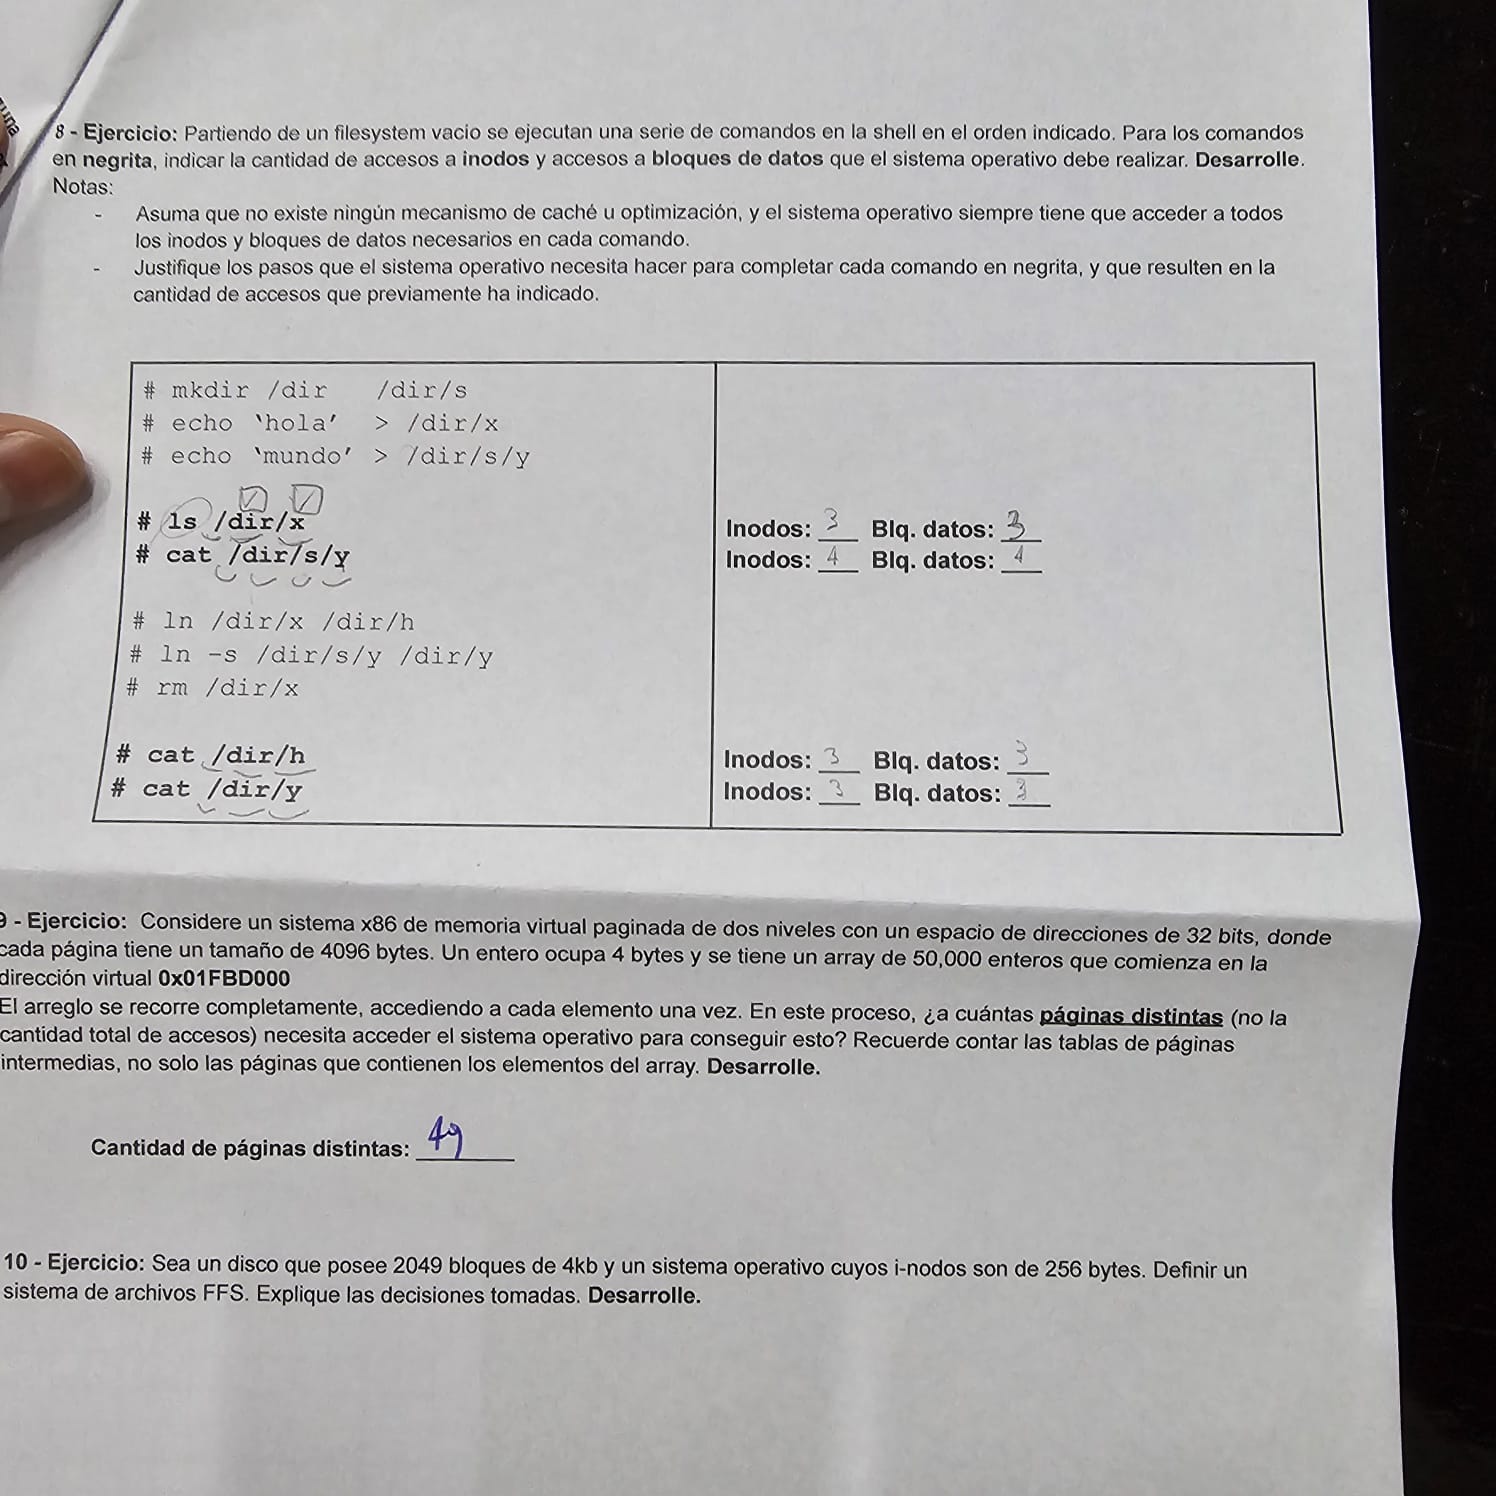 8 - Ejercicio: Partiendo de un filesystem vacío se ejecutan una serie de comandos en la shell en el orden indicado. Para los comandos
en negrita, indicar la cantidad de accesos a inodos y accesos a bloques de datos que el sistema operativo debe realizar. Desarrolle.
Notas:
- Asuma que no existe ningún mecanismo de caché u optimización, y el sistema operativo siempre tiene que acceder a todos
los inodos y bloques de datos necesarios en cada comando.
- Justifique los pasos que el sistema operativo necesita hacer para completar cada comando en negrita, y que resulten en la
cantidad de accesos que previamente ha indicado.
# mkdir /dir /dir/s
# echo ‘hola’ > /dir/x
# echo ‘mundo’ > /dir/s/y
# ls /dir/x Inodos: 3 Blq. datos: 3
# cat /dir/s/y Inodos: 4 Blq. datos: 4
# ln /dir/x /dir/h
# ln -s /dir/s/y /dir/y
# rm /dir/x
# cat /dir/h Inodos: 3 Blq. datos: 3
# cat /dir/y Inodos: 3 Blq. datos: 3
9 - Ejercicio: Considere un sistema x86 de memoria virtual paginada de dos niveles con un espacio de direcciones de 32 bits, donde
cada página tiene un tamaño de 4096 bytes. Un entero ocupa 4 bytes y se tiene un array de 50,000 enteros que comienza en la
dirección virtual 0x01FBD000
El arreglo se recorre completamente, accediendo a cada elemento una vez. En este proceso, ¿a cuántas páginas distintas (no la
cantidad total de accesos) necesita acceder el sistema operativo para conseguir esto? Recuerde contar las tablas de páginas
intermedias, no solo las páginas que contienen los elementos del array. Desarrolle.
Cantidad de páginas distintas: 49
10 - Ejercicio: Sea un disco que posee 2049 bloques de 4kb y un sistema operativo cuyos i-nodos son de 256 bytes. Definir un
sistema de archivos FFS. Explique las decisiones tomadas. Desarrolle.